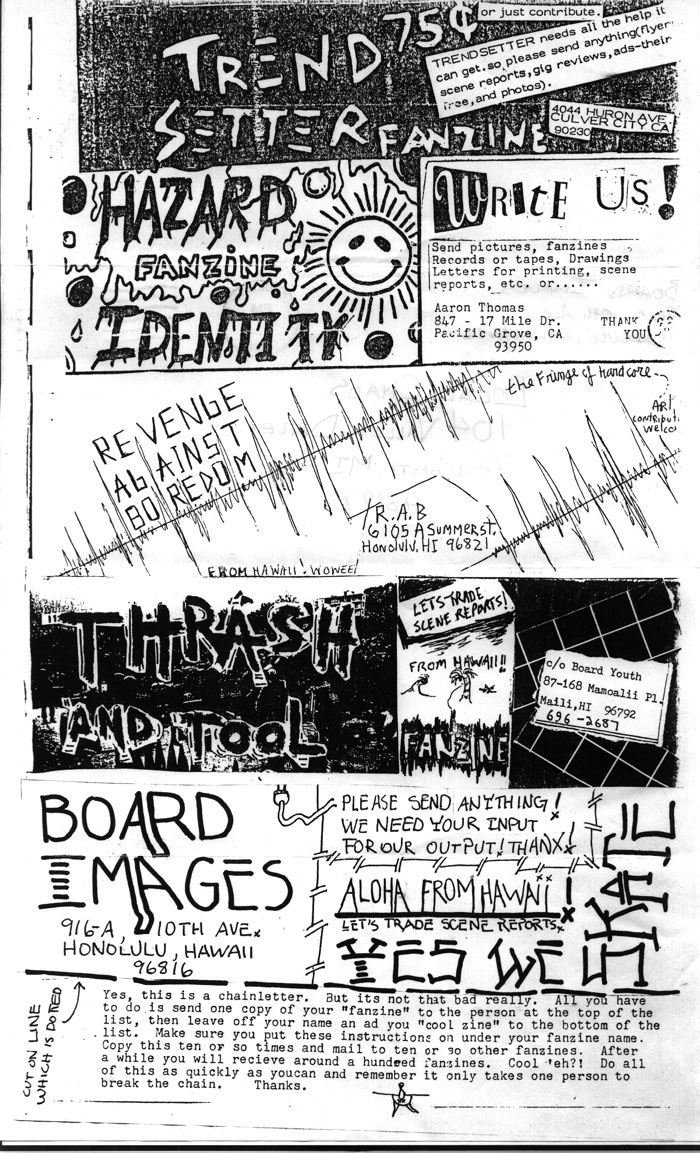 TREND 75¢
SETTER FANZINE
or just contribute.
TRENDSETTER needs all the help it
can get.so please send anything(flyer
scene reports,gig reviews,ads-their
free,and photos).
4044 HURON AVE.
CULVER CITY CA
90230
HAZARD
FANZINE
IDENTITY
WRITE US!
Send pictures, fanzines
Records or tapes, Drawings
Letters for printing, scene
reports, etc. or......
Aaron Thomas
847 - 17 Mile Dr.
Pacific Grove, CA
93950
THANK
YOU
the Fringe of hardcore
ART
contribut
welco
REVENGE
AGAINST
BOREDOM
R.A.B
6105 A Summer St.
Honolulu, HI 96821
FROM HAWAII! WOWEE!
THRASH
AND TOOL
LETS TRADE
SCENE REPORTS!
FROM HAWAII!!
FANZINE
c/o Board Youth
87-168 Mamoalii Pl.
Maili,HI 96792
696-2687
BOARD
IMAGES
916-A, 10TH AVE.
HONOLULU, HAWAII
96816
PLEASE SEND ANYTHING!
WE NEED YOUR INPUT
FOR OUR OUTPUT! THANX!
ALOHA FROM HAWAII!
LET'S TRADE SCENE REPORTS.
YES WE SKATE
CUT ON LINE
WHICH IS DOTTED
Yes, this is a chainletter. But its not that bad really. All you have
to do is send one copy of your "fanzine" to the person at the top of the
list, then leave off your name an ad you "cool zine" to the bottom of the
list. Make sure you put these instructions on under your fanzine name.
Copy this ten or so times and mail to ten or so other fanzines. After
a while you will recieve around a hundred fanzines. Cool 'eh?! Do all
of this as quickly as youcan and remember it only takes one person to
break the chain. Thanks.